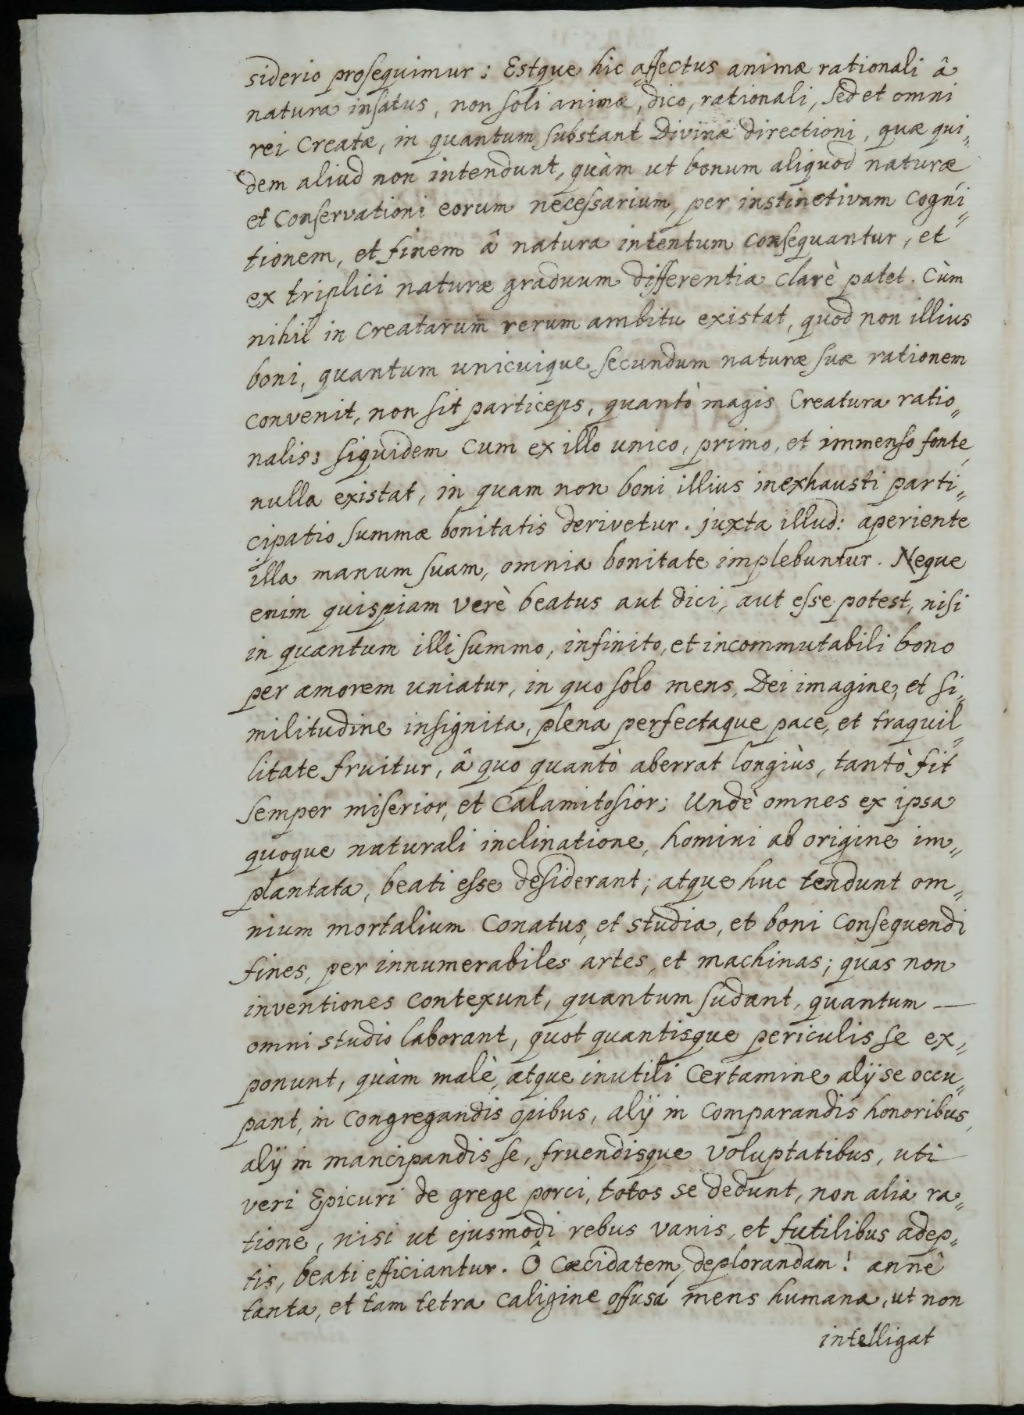 siderio prosequimur: Estque hic affectus animæ rationali â
natura insatus, non soli animæ, dico, rationali, sed et omni
rei Creatæ, in quantum substant Divinæ directioni, quæ qui„
dem aliud non intendunt, quàm ut bonum aliquod naturæ
et Conservationi eorum necessarium, per instinctivam Cogni„
tionem, et finem â natura intentum consequantur, et
ex triplici naturæ graduum differentia clarè patet. Cùm
nihil in Creatarum rerum ambitu existat, quod non illius
boni, quantum unicuique secundum naturæ suæ rationem
convenit, non sit particeps, quantò magis Creatura ratio„
nalis; siquidem Cum ex illo unico, primo, et immenso fonte
nulla existat, in quam non boni illius inexhausti parti„
cipatio summæ bonitatis derivetur. juxta illud: aperiente
illa manum suam, omnia bonitate implebuntur. Neque
enim quispiam verè beatus aut dici, aut esse potest, nisi
in quantum illi summo, infinito, et incommutabili bono
per amorem uniatur, in quo solo mens, Dei imagine, et si„
militudine insignita, plena perfectaque pace, et traquil„
litate fruitur, â quo quantò aberrat longiùs, tantò fit
semper miserior, et Calamitosior; Undè omnes ex ipsa
quoque naturali inclinatione, homini ab origine im„
plantata, beati esse desiderant; atque huc tendunt om„
nium mortalium Conatus, et studia, et boni Consequendi
fines, per innumerabiles artes, et machinas; quas non
inventiones contexunt, quantum sudant, quantum —
omni studio laborant, quot quantisque periculis se ex„
ponunt, quàm malè, atque inutili Certamine alÿ se occu„
pant, in Congregandis opibus, alÿ in Comparandis honoribus,
alÿ in mancipandis se, fruendisque voluptatibus, uti
veri Epicuri de grege porci, totos se dedunt, non alia ra„
tione, nisi ut ejusmodi rebus vanis, et futilibus adep„
tis, beati efficiantur. Ô Cæcidatem deplorandam! annê
tanta, et tam tetra caligine offusa mens humana, ut non
intelligat